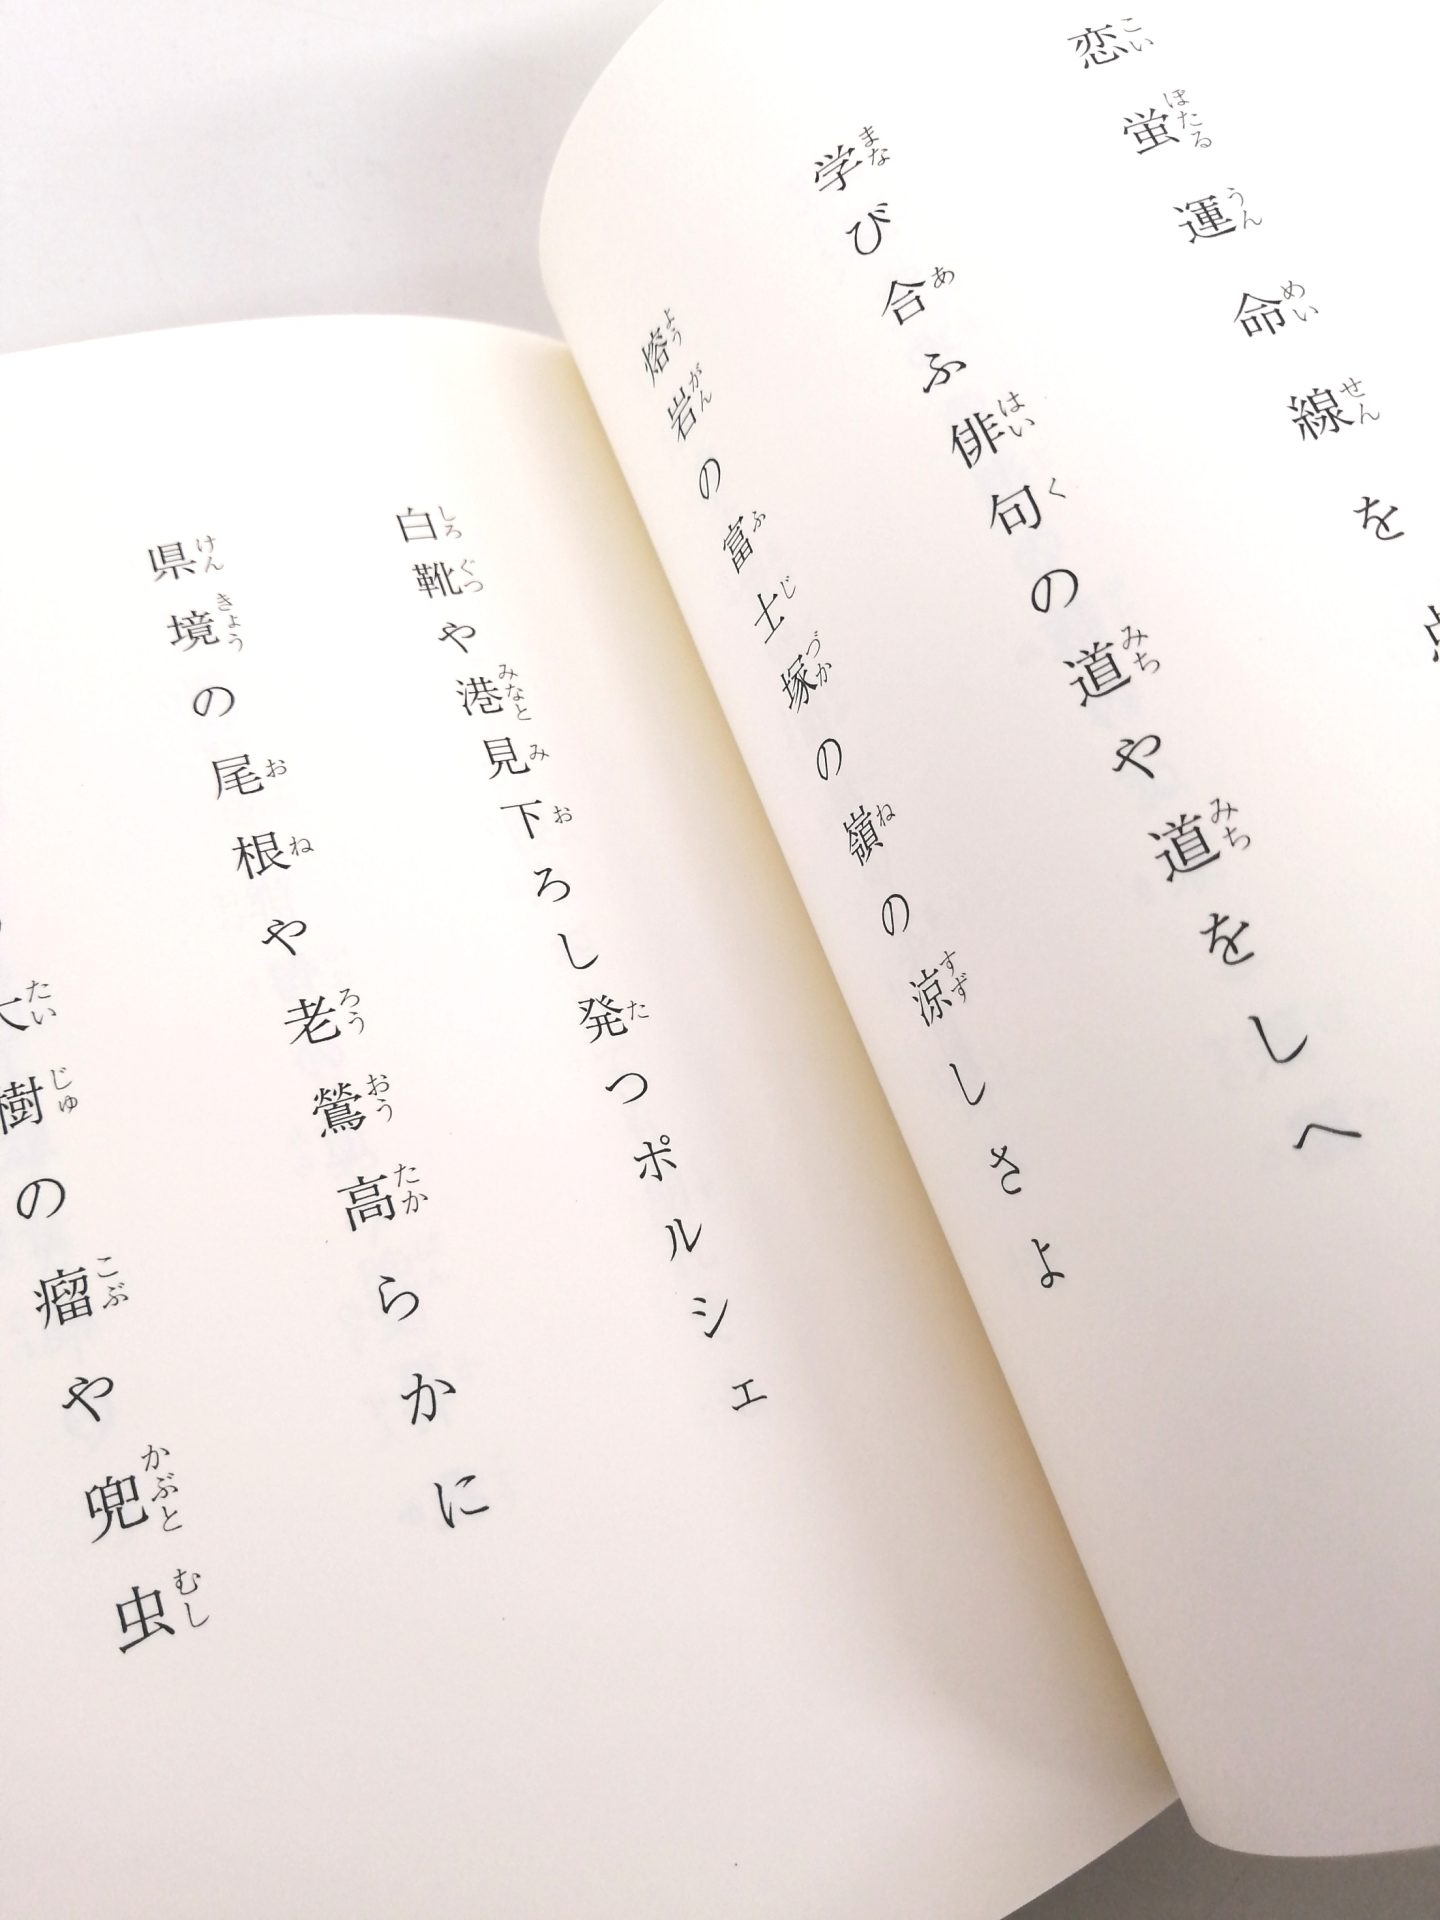 恋蛍運命線を
学び合ふ俳句の道や道をしへ
熔岩の富士塚の嶺の涼しさよ
白靴や港見下ろし発つポルシェ
県境の尾根や老鶯高らかに
大樹の瘤や兜虫